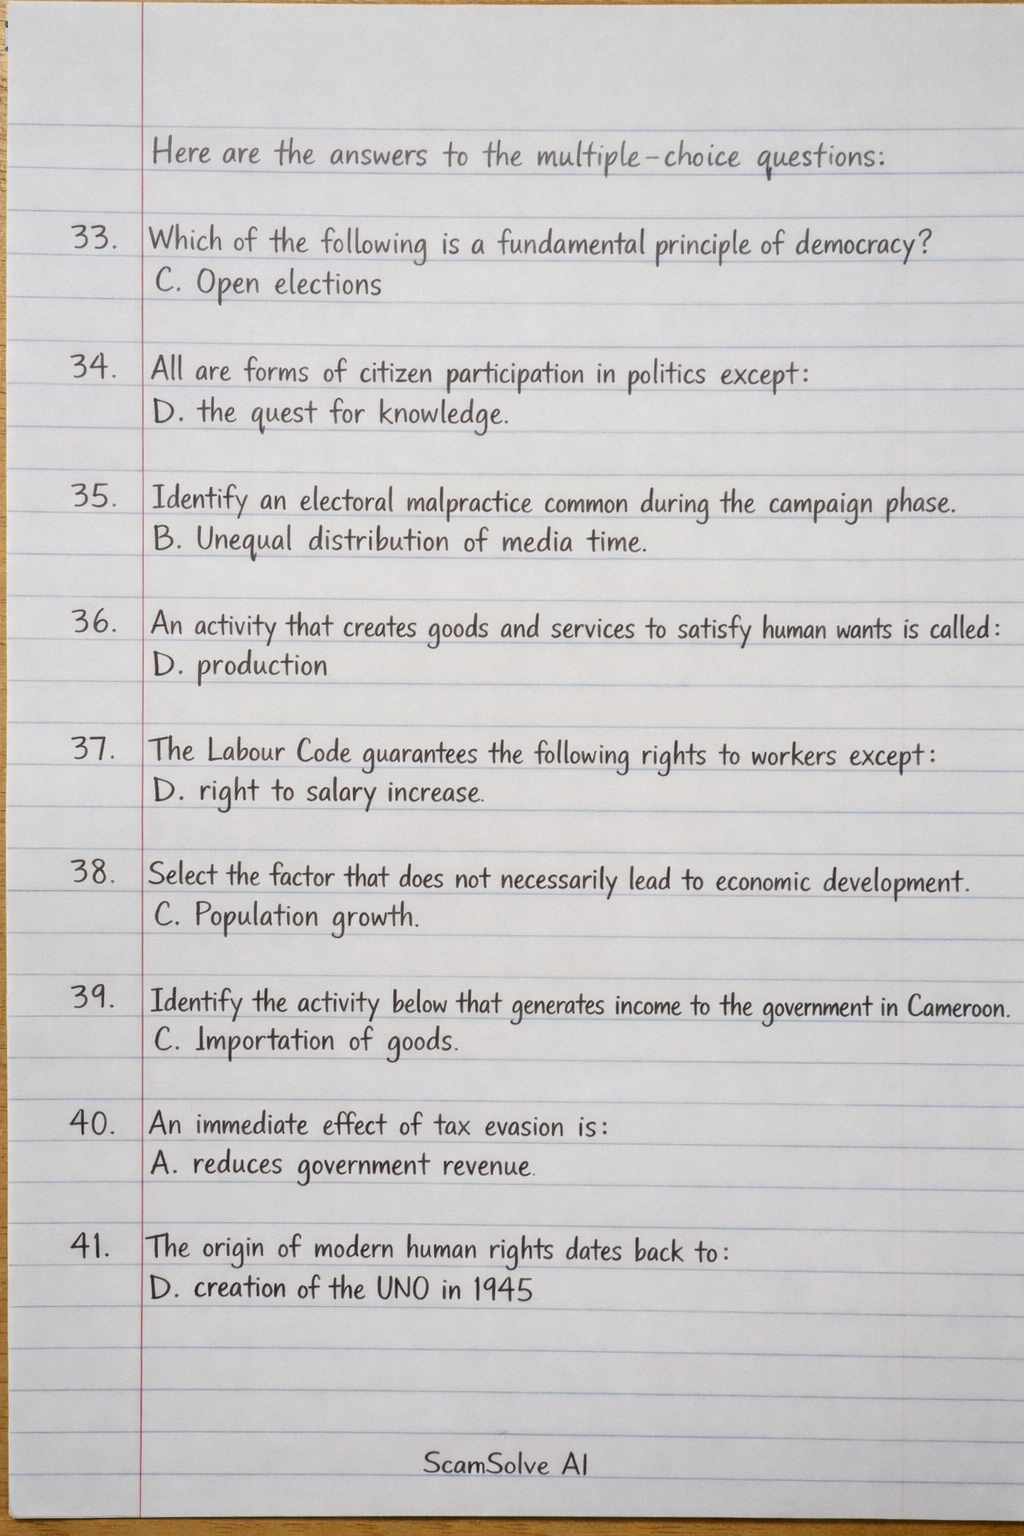 Here are the answers to the multiple-choice questions:
33. Which of the following is a fundamental principle of democracy?
C. Open elections
34. All are forms of citizen participation in politics except:
D. the quest for knowledge.
35. Identify an electoral malpractice common during the campaign phase.
B. Unequal distribution of media time.
36. An activity that creates goods and services to satisfy human wants is called:
D. production
37. The Labour Code guarantees the following rights to workers except:
D. right to salary increase.
38. Select the factor that does not necessarily lead to economic development.
C. Population growth.
39. Identify the activity below that generates income to the government in Cameroon.
C. Importation of goods.
40. An immediate effect of tax evasion is:
A. reduces government revenue.
41. The origin of modern human rights dates back to:
D. creation of the UNO in 1945
ScamSolve AI